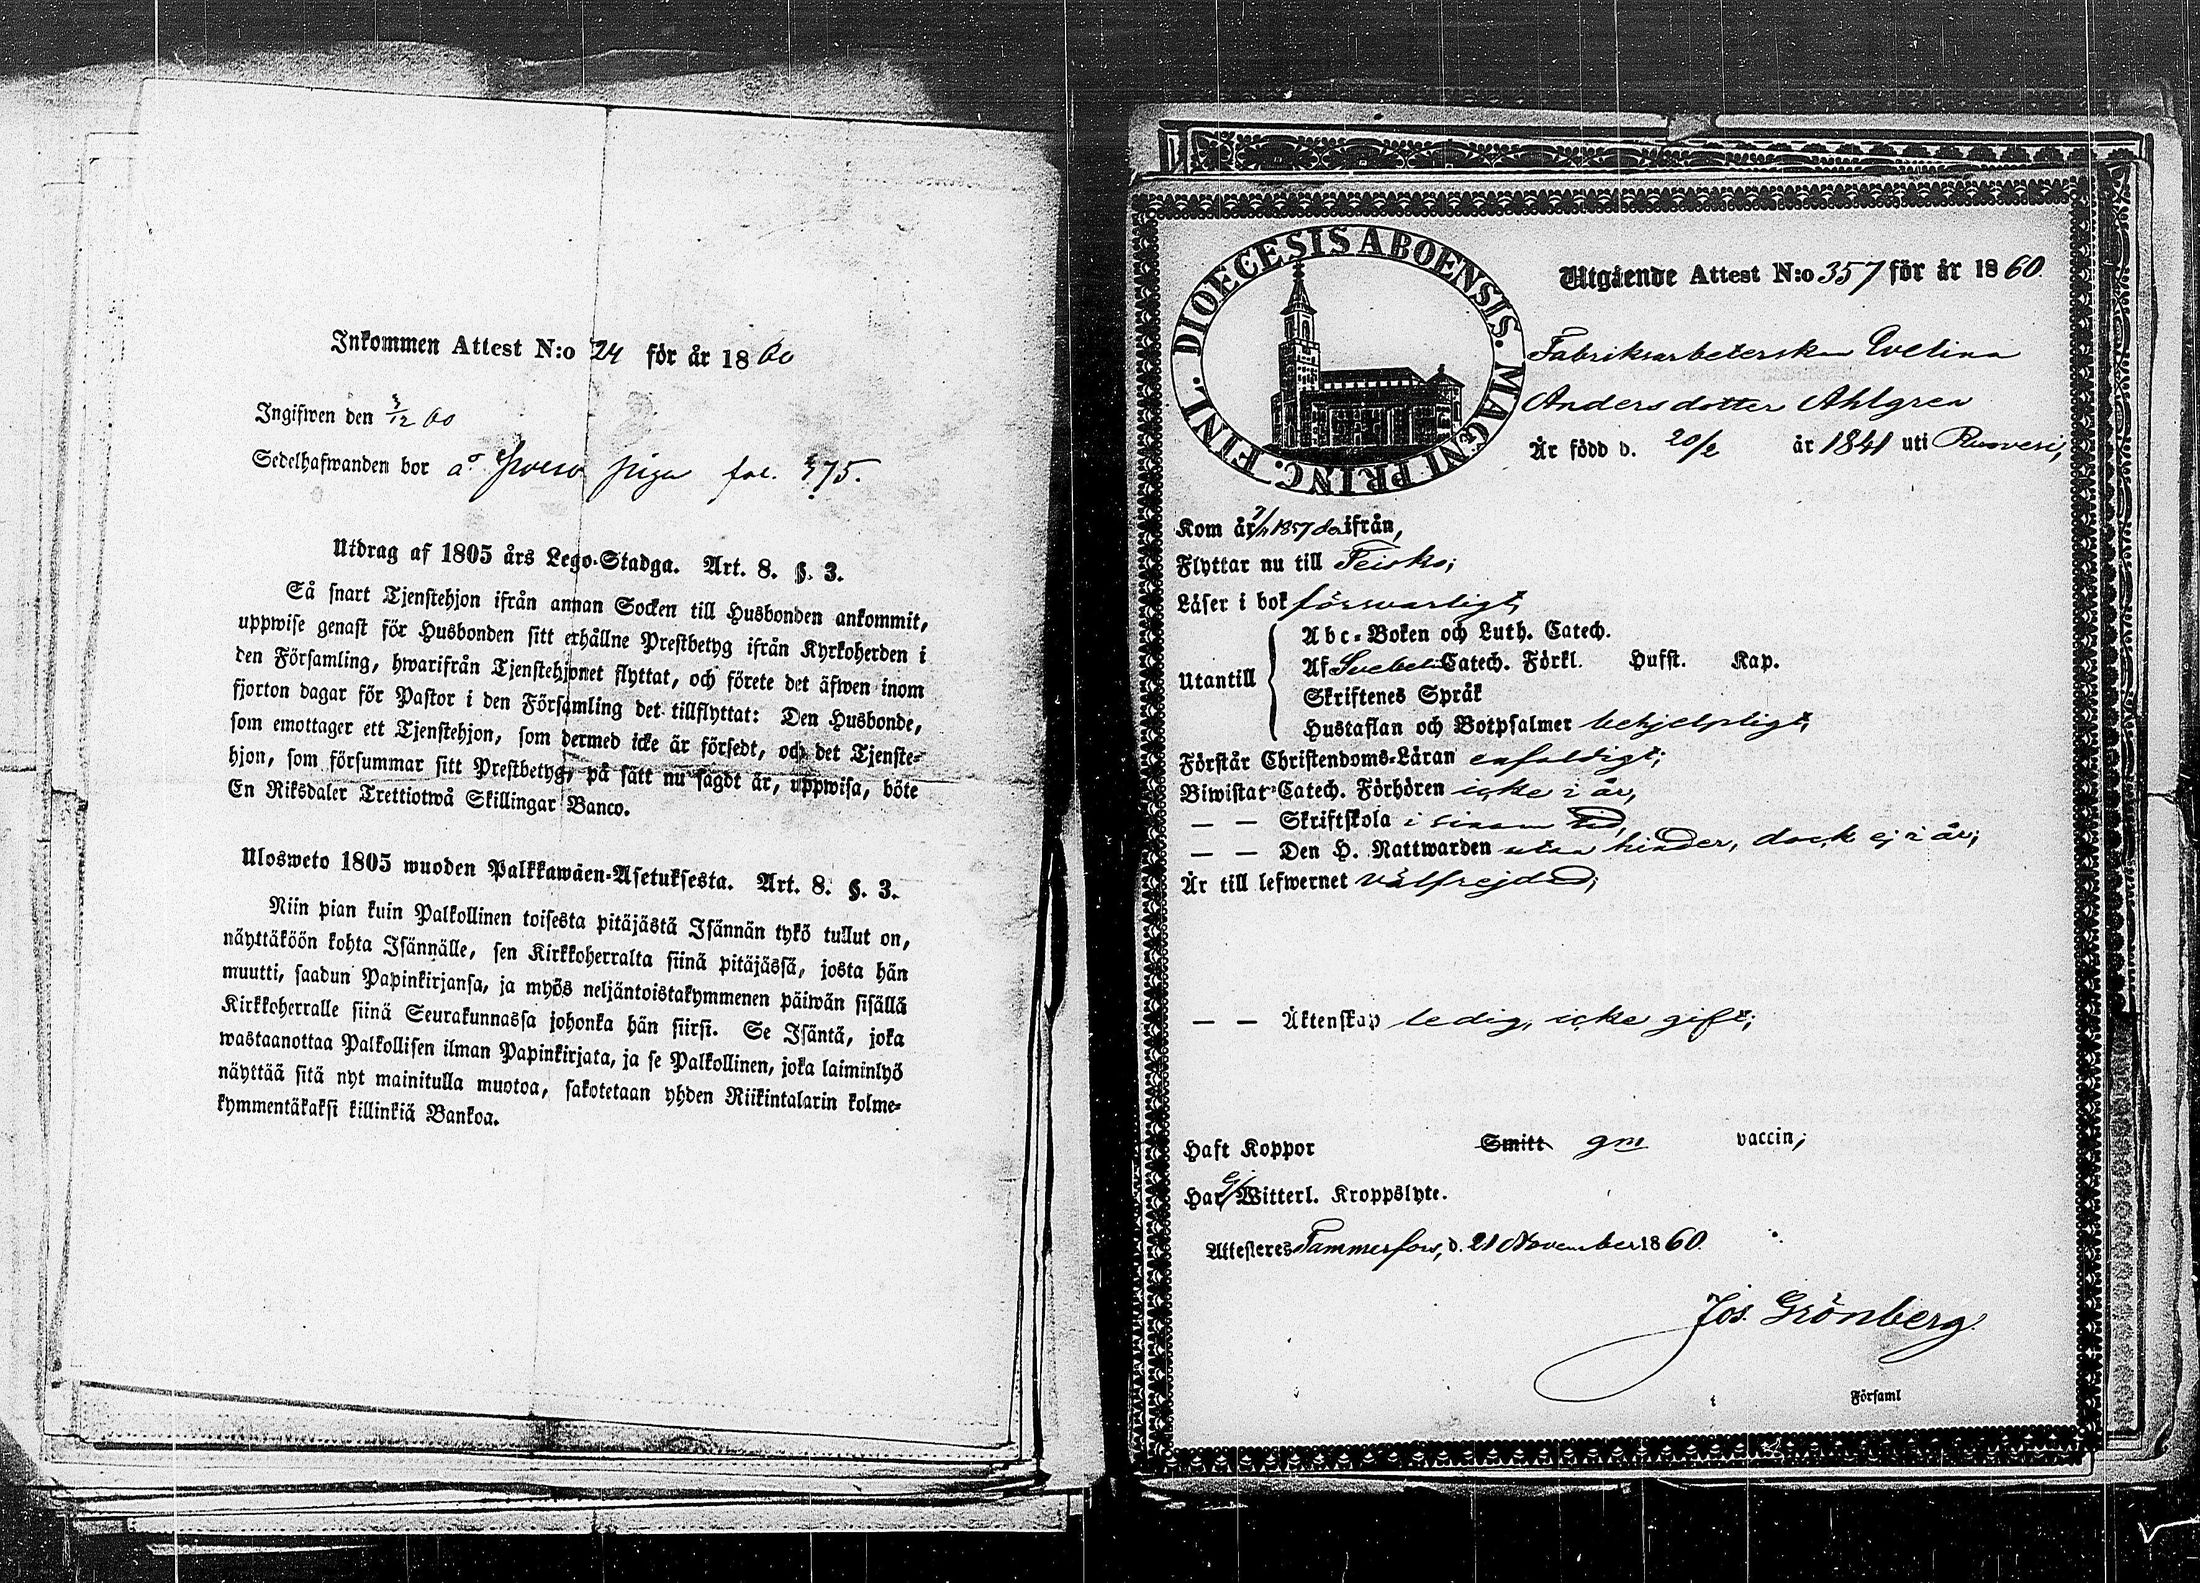 Inkommen Attest N:o 24 för år 1860
Ingifwen den 3/12 60
Sedelhafwanden bor å piga fol. 375.
Utdrag af 1805 års Lego-Stadga. Art. 8. §. 3.
Så snart Tjenstehjon ifrån annan Socken till Husbonden ankommit,
uppwise genast för Husbonden sitt erhållne Prestbetyg ifrån Kyrkoherden i
den Församling, hwarifrån Tjenstehjonet flyttat, och förete det äfwen inom
fjorton dagar för Pastor i den Församling det tillflyttat: Den Husbonde,
som emottager ett Tjenstehjon, som dermed icke är försedt, och det Tjenste-
hjon, som försummar sitt Prestbetyg, på sätt nu sagdt är, uppwisa, böte
En Riksdaler Trettiotwå Skillingar Banco.
Ulosweto 1805 wuoden Palkkawäen-Asetuksesta. Art. 8. §. 3.
Niin pian kuin Palkollinen toisesta pitäjästä Isännän tykö tullut on,
näyttäköön kohta Isännälle, sen Kirkkoherralta siinä pitäjässä, josta hän
muutti, saadun Papinkirjansa, ja myös neljäntoistakymmenen päiwän sisällä
Kirkkoherralle siinä Seurakunnassa johonka hän siirsi. Se Isäntä, joka
wastaanottaa Palkollisen ilman Papinkirjata, ja se Palkollinen, joka laiminlyö
näyttää sitä nyt mainitulla muotoa, sakotetaan yhden Riikintalarin kolme-
kymmentäkaksi killinkiä Bankoa.
DIOECESIS ABOENSIS. MAGNI PRINC. FINL.
Utgående Attest N:o 357 för år 1860
Fabriksarbeterskan Evelina
Andersdotter Ahlgren
Är född d. 20/2 år 1841 uti Ruovesi,
Kom år 1857 der ifrån,
Flyttar nu till Teisko;
Läser i bok försvarligt,
Utantill
Abc-Boken och Luth. Catech.
Af Svebel. Catech. Förkl. Hufst. Kap.
Skriftenes Språk
Hustaflan och Botpsalmer behjelpligt,
Förstår Christendoms-Läran enfaldigt;
Biwistat Catech. Förhören icke i år,
— — Skriftskola i sinom tid,
— — Den H. Nattwarden utan hinder, dock ej i år;
Är till lefwernet välfrejdad;
— — Äktenskap ledig, icke gift;
Haft Koppor Smitt gm vaccin;
Har ej Witterl. Kroppslyte.
Attesteres Tammerfors, d. 21 November 1860.
Jos. Grönberg.
Församl